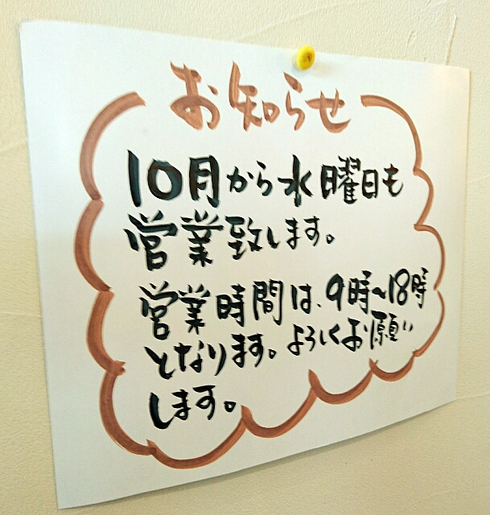 お知らせ
10月から水曜日も
営業致します。
営業時間は、9時〜18時
となります。よろしくお願い
します。